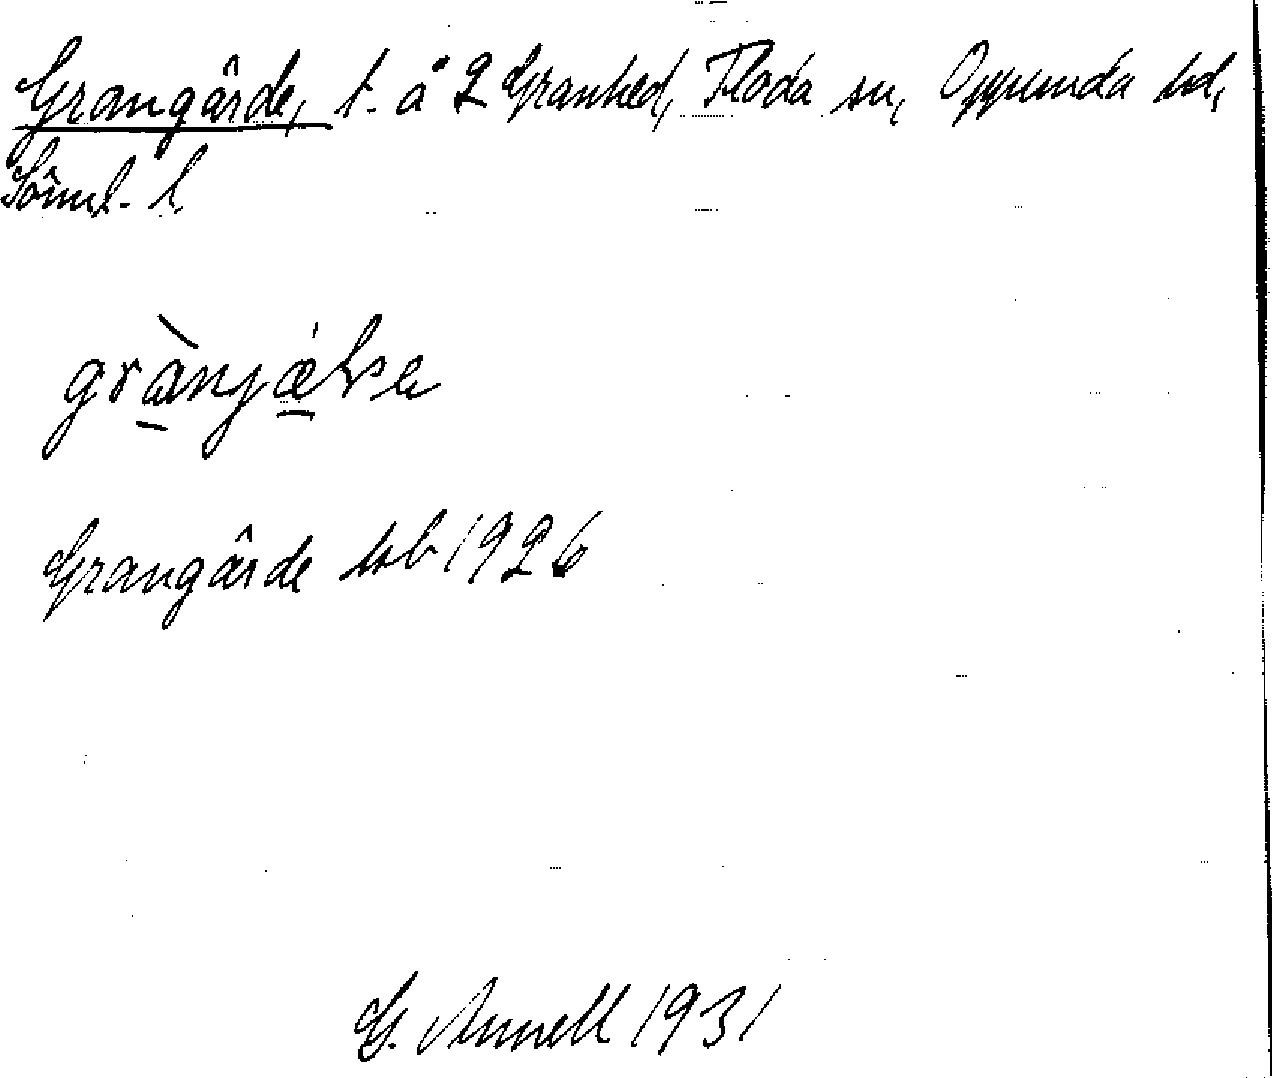 Grangärde, t. å 2 Granhed, Floda sn, Oppunda hd,
Söml. l.
Grangärde tsb 1926
G. Annell 1931